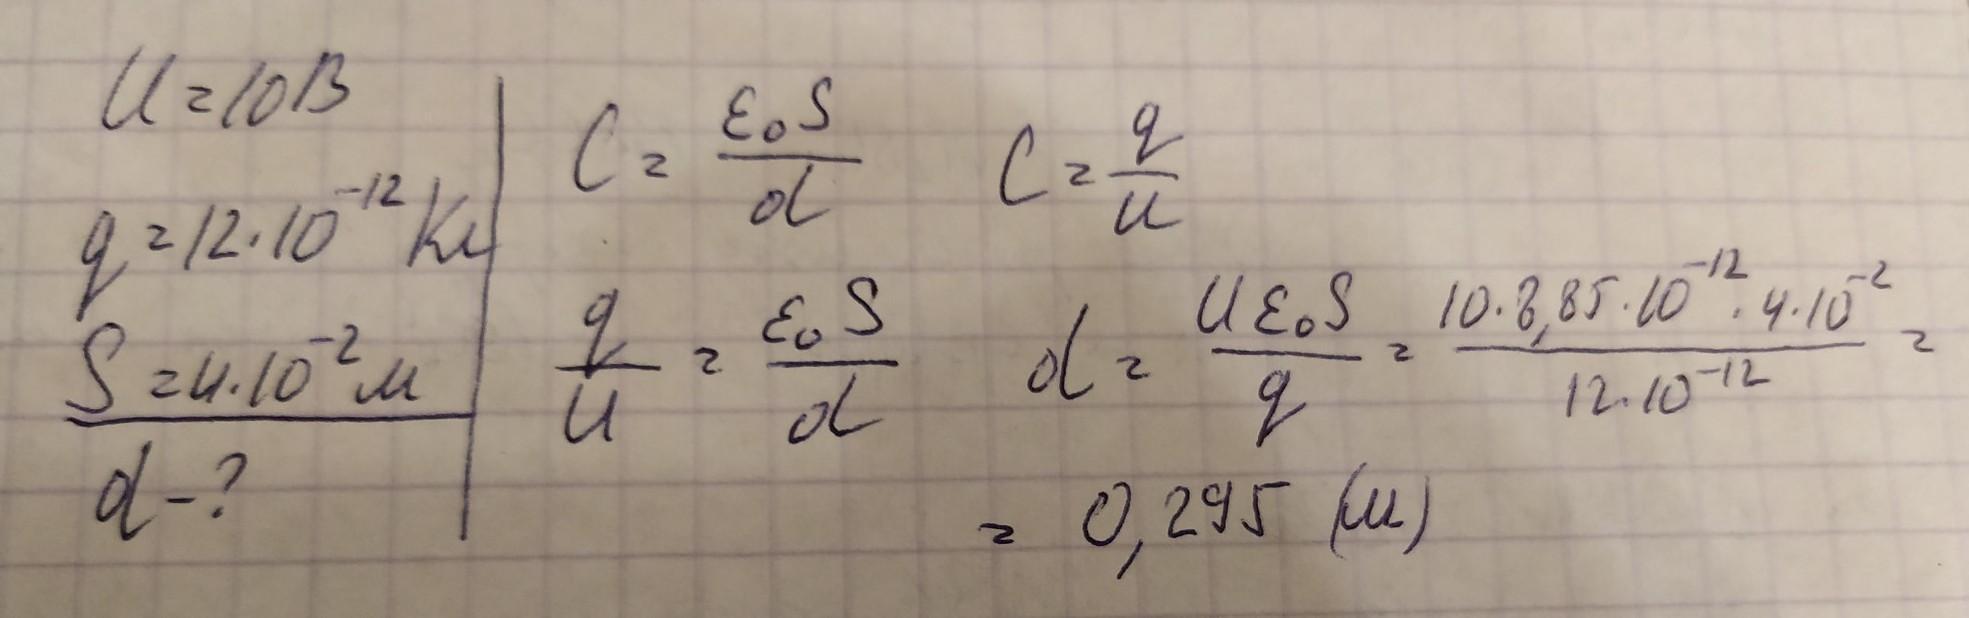 U = 10 В
q = 12·10⁻¹² Кл
S = 4·10⁻² м
d - ?
C = ε₀S/d   C = q/U
q/U = ε₀S/d   d = Uε₀S/q = 10·8,85·10⁻¹²·4·10⁻²/12·10⁻¹² =
= 0,295 (м)